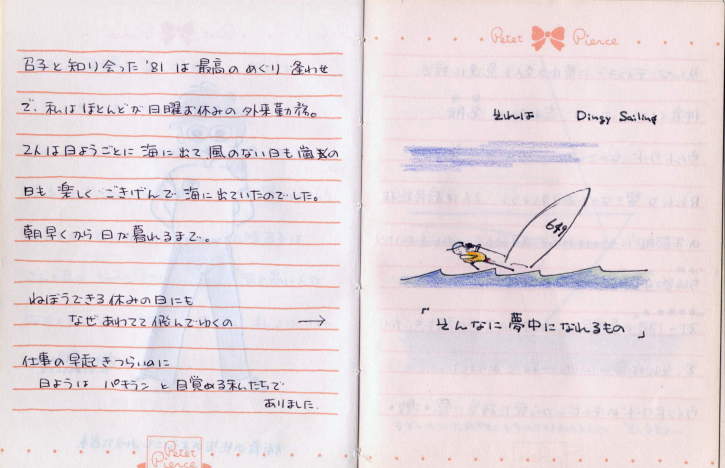 呂子と知り合った '81 は最高のめぐり逢わせ
で、私はほとんどが日曜お休みの外来勤務。
2人は日ようごとに 海に出て 風のない日も
日も 楽しく ごきげんで 海に出ていたのでした。
朝早くから 日が暮れるまで。
ねぼうできる休みの日にも
なぜ あわてて 飛んでゆくの →
仕事の早起 きつらいのに
日ようは パキランと 目覚める私たちで
ありました。
Petet Pierce
Petet Pierce
それは Dingy Sailing
649
「そんなに夢中になれるもの」